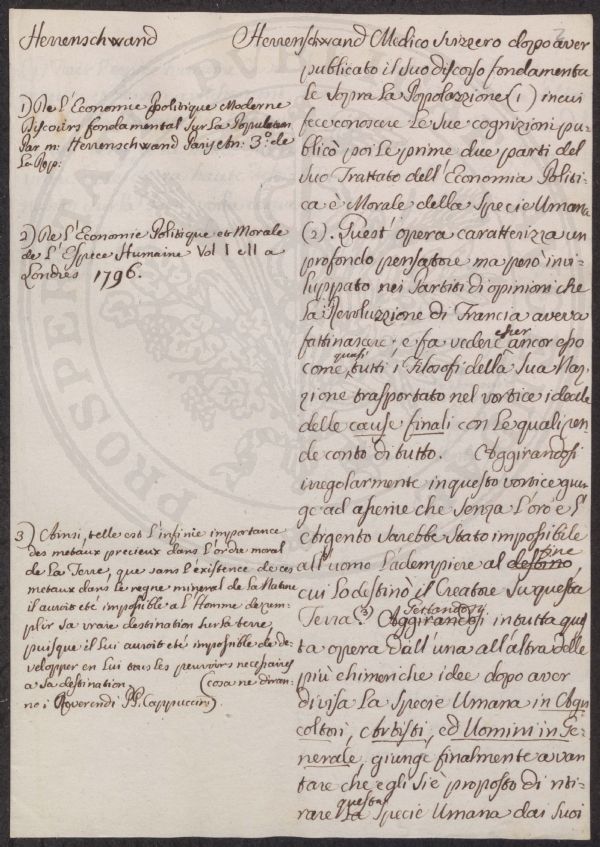 Herrenschwand
1) De L'Economie Politique Moderne
Discours fondamental sur La Population
Par m: Herrenschwand Paris etn: 3.e de
La Rep:
2) De L'Economie Politique et Morale
de L'Espece Humaine Vol I e II a
Londres 1796.
3) Ainsi, telle est L'infinie importance
des metaux precieux dans L'ordre moral
de La Terre, que sans L'existence de ces
metaux dans le regne mineral de La Nature
il auroit eté impossible a L'Homme de rem-
plir sa vraie destination sur La terre,
puisque il Lui auroit eté impossible de de-
velopper en Lui tous les pouvoirs necessaires
a sa destination. (cosa ne diran-
no i Reverendi PP. Cappuccini).
Herrenschwand Medico svizzero dopo aver
publicato il suo discorso fondamenta
le sopra La Popolazzione (1) incui
fece conoscere Le sue cognizioni pu-
blicò poi Le prime due parti del
suo Trattato dell'Economia Politi-
ca è Morale della Specie Umana
(2). Quest'opera caratterizza un
profondo pensatore ma però invi-
luppato nei Partiti di opinioni che
La Revoluzzione di Francia aveva
fatti nascere; e fa vedere esser ancor esso
come quasi tutti i Filosofi della sua Naz-
zione trasportato nel vortice ideale
delle cause finali con Le quali ren
de conto di tutto. Aggirandosi
irregolarmente in questo vortice giun
ge ad asserire che senza L'oro e L'
Argento sarebbe stato impossibile
all'uomo L'adempiere al destino fine
cui Lo destinò il Creatore su questa
Terra. 3) Aggirandosi in tutta ques
ta opera dall'una all'altra delle
più chimeriche idee dopo aver
divisa La Specie Umana in Agri
coltori, Artisti, ed Uomini in Ge-
nerale, giunge finalmente a van
tare che egli si è proposto di riti-
rare questa La Specie Umana dai suoi